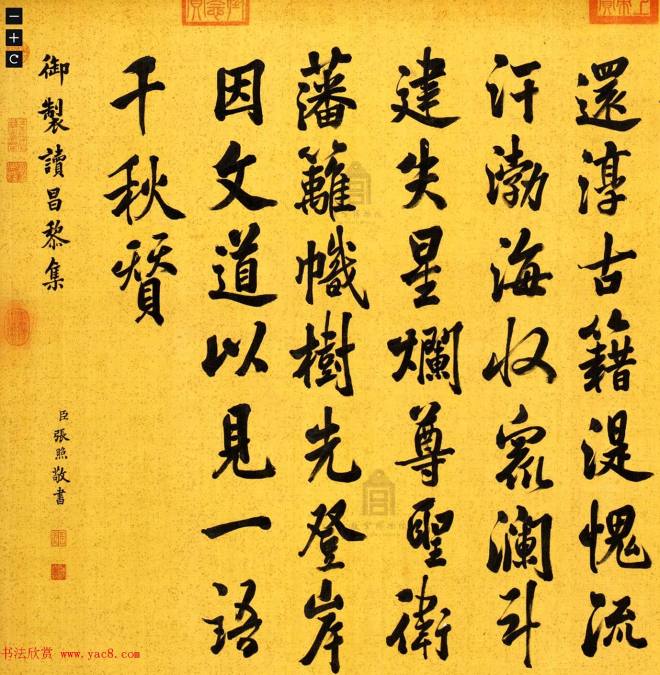 還淳古籍湜愧流
汗渤海收衆瀾斗
建失星爛尊聖衛
藩籬幟樹先登岸
因文道以見一語
千秋贊
御製讀昌黎集
臣張照敬書
书法欣赏 www.yac8.com